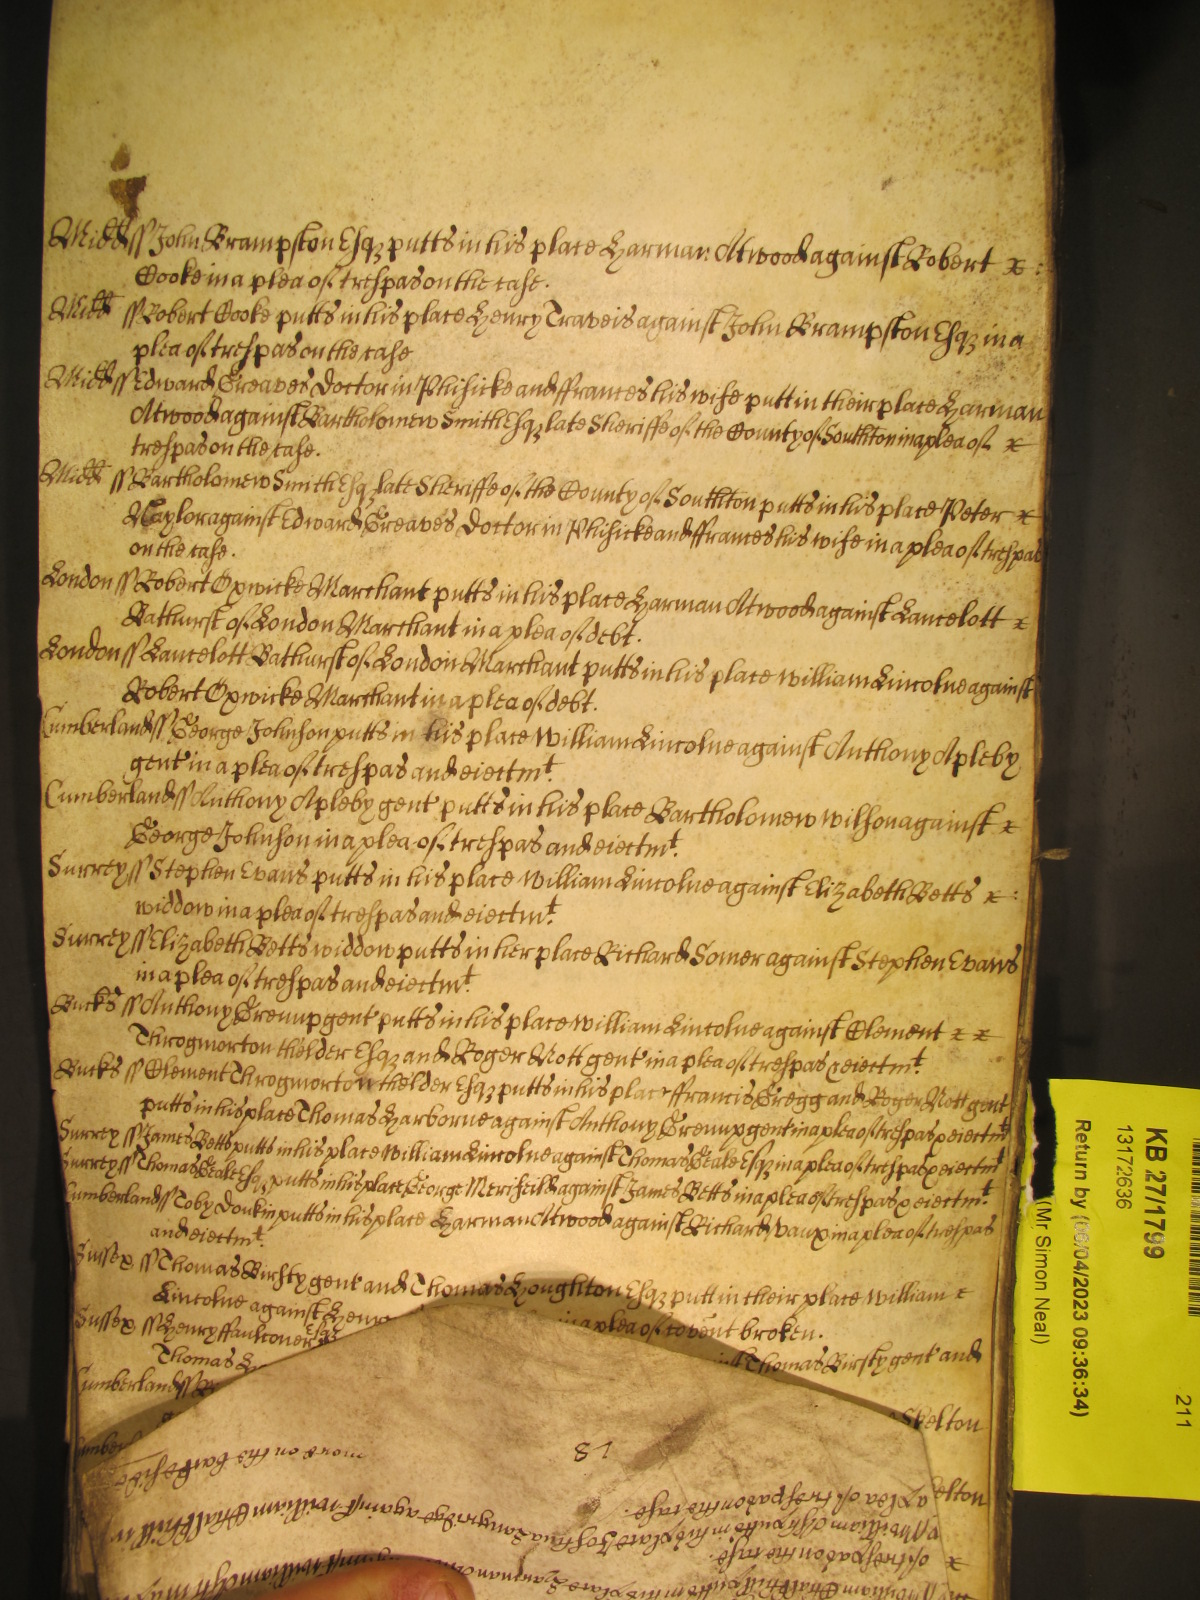 Midd ss John Brampston Esqz putts in his place Harman Atwood against Robert
Cooke in a plea of trespas on the case.
Midd ss Robert Cooke putts in his place Henry Traveis against John Brampston Esqz in a
plea of trespas on the case
Midd ss Edward Greaves Doctor in Phisicke and ffrances his wife putt in their place Harman
Atwood against Bartholomew Smith Esqz late Sheriffe of the County of Southton in a plea of
trespas on the case.
Midd ss Bartholomew Smith Esqz late Sheriffe of the County of Southton putts in his place Peter
Naylor against Edward Greaves Doctor in Phisicke and ffrances his wife in a plea of trespas
on the case.
London ss Robert Oxwicke Marchant putts in his place Harman Atwood against Lancelott
Bathurst of London Marchant in a plea of debt.
London ss Lancelott Bathurst of London Marchant putts in his place William Lincolne against
Robert Oxwicke Marchant in a plea of debt.
Cumberland ss George Johnson putts in his place William Lincolne against Anthony Apleby
gent in a plea of trespas and eiectmt.
Cumberland ss Anthony Apleby gent putts in his place Bartholomew Wilson against
George Johnson in a plea of trespas and eiectmt.
Surrey ss Stephen Evans putts in his place William Lincolne against Elizabeth Betts
widdow in a plea of trespas and eiectmt.
Surrey ss Elizabeth Betts widdow putts in her place Richard Somer against Stephen Evans
in a plea of trespas and eiectmt.
Bucks ss Anthony Greenup gent putts in his place William Lincolne against Clement
Throgmorton thelder Esqz and Roger Nott gent in a plea of trespas & eiectmt.
Bucks ss Clement Throgmorton thelder Esqz putts in his place ffrancis Gregg and Roger Nott gent
putts in his place Thomas Harborne against Anthony Greenup gent in a plea of trespas & eiectmt
Surrey ss James Betts putts in his place William Lincolne against Thomas Beale Esqz in a plea of trespas & eiectmt
Surrey ss Thomas Beale Esqz putts in his place George against James Betts in a plea of trespas & eiectmt.
Cumberland ss Toby Donkin putts in his place Harman Atwood against Richard Vaux in a plea of trespas
and eiectmt.
Sussex ss Thomas Birsty gent and Thomas Houghton Esqz putt in their place William
Lincolne against Henry in a plea of covent broken.
Sussex ss Henry ffaulconer Esqz Thomas Birsty gent and
Thomas
Cumberland ss
Skelton
elton
18
more on the
KB 27/1799
13172636
Return by (06/04/2023 09:36:34)
(Mr Simon Neal)
211